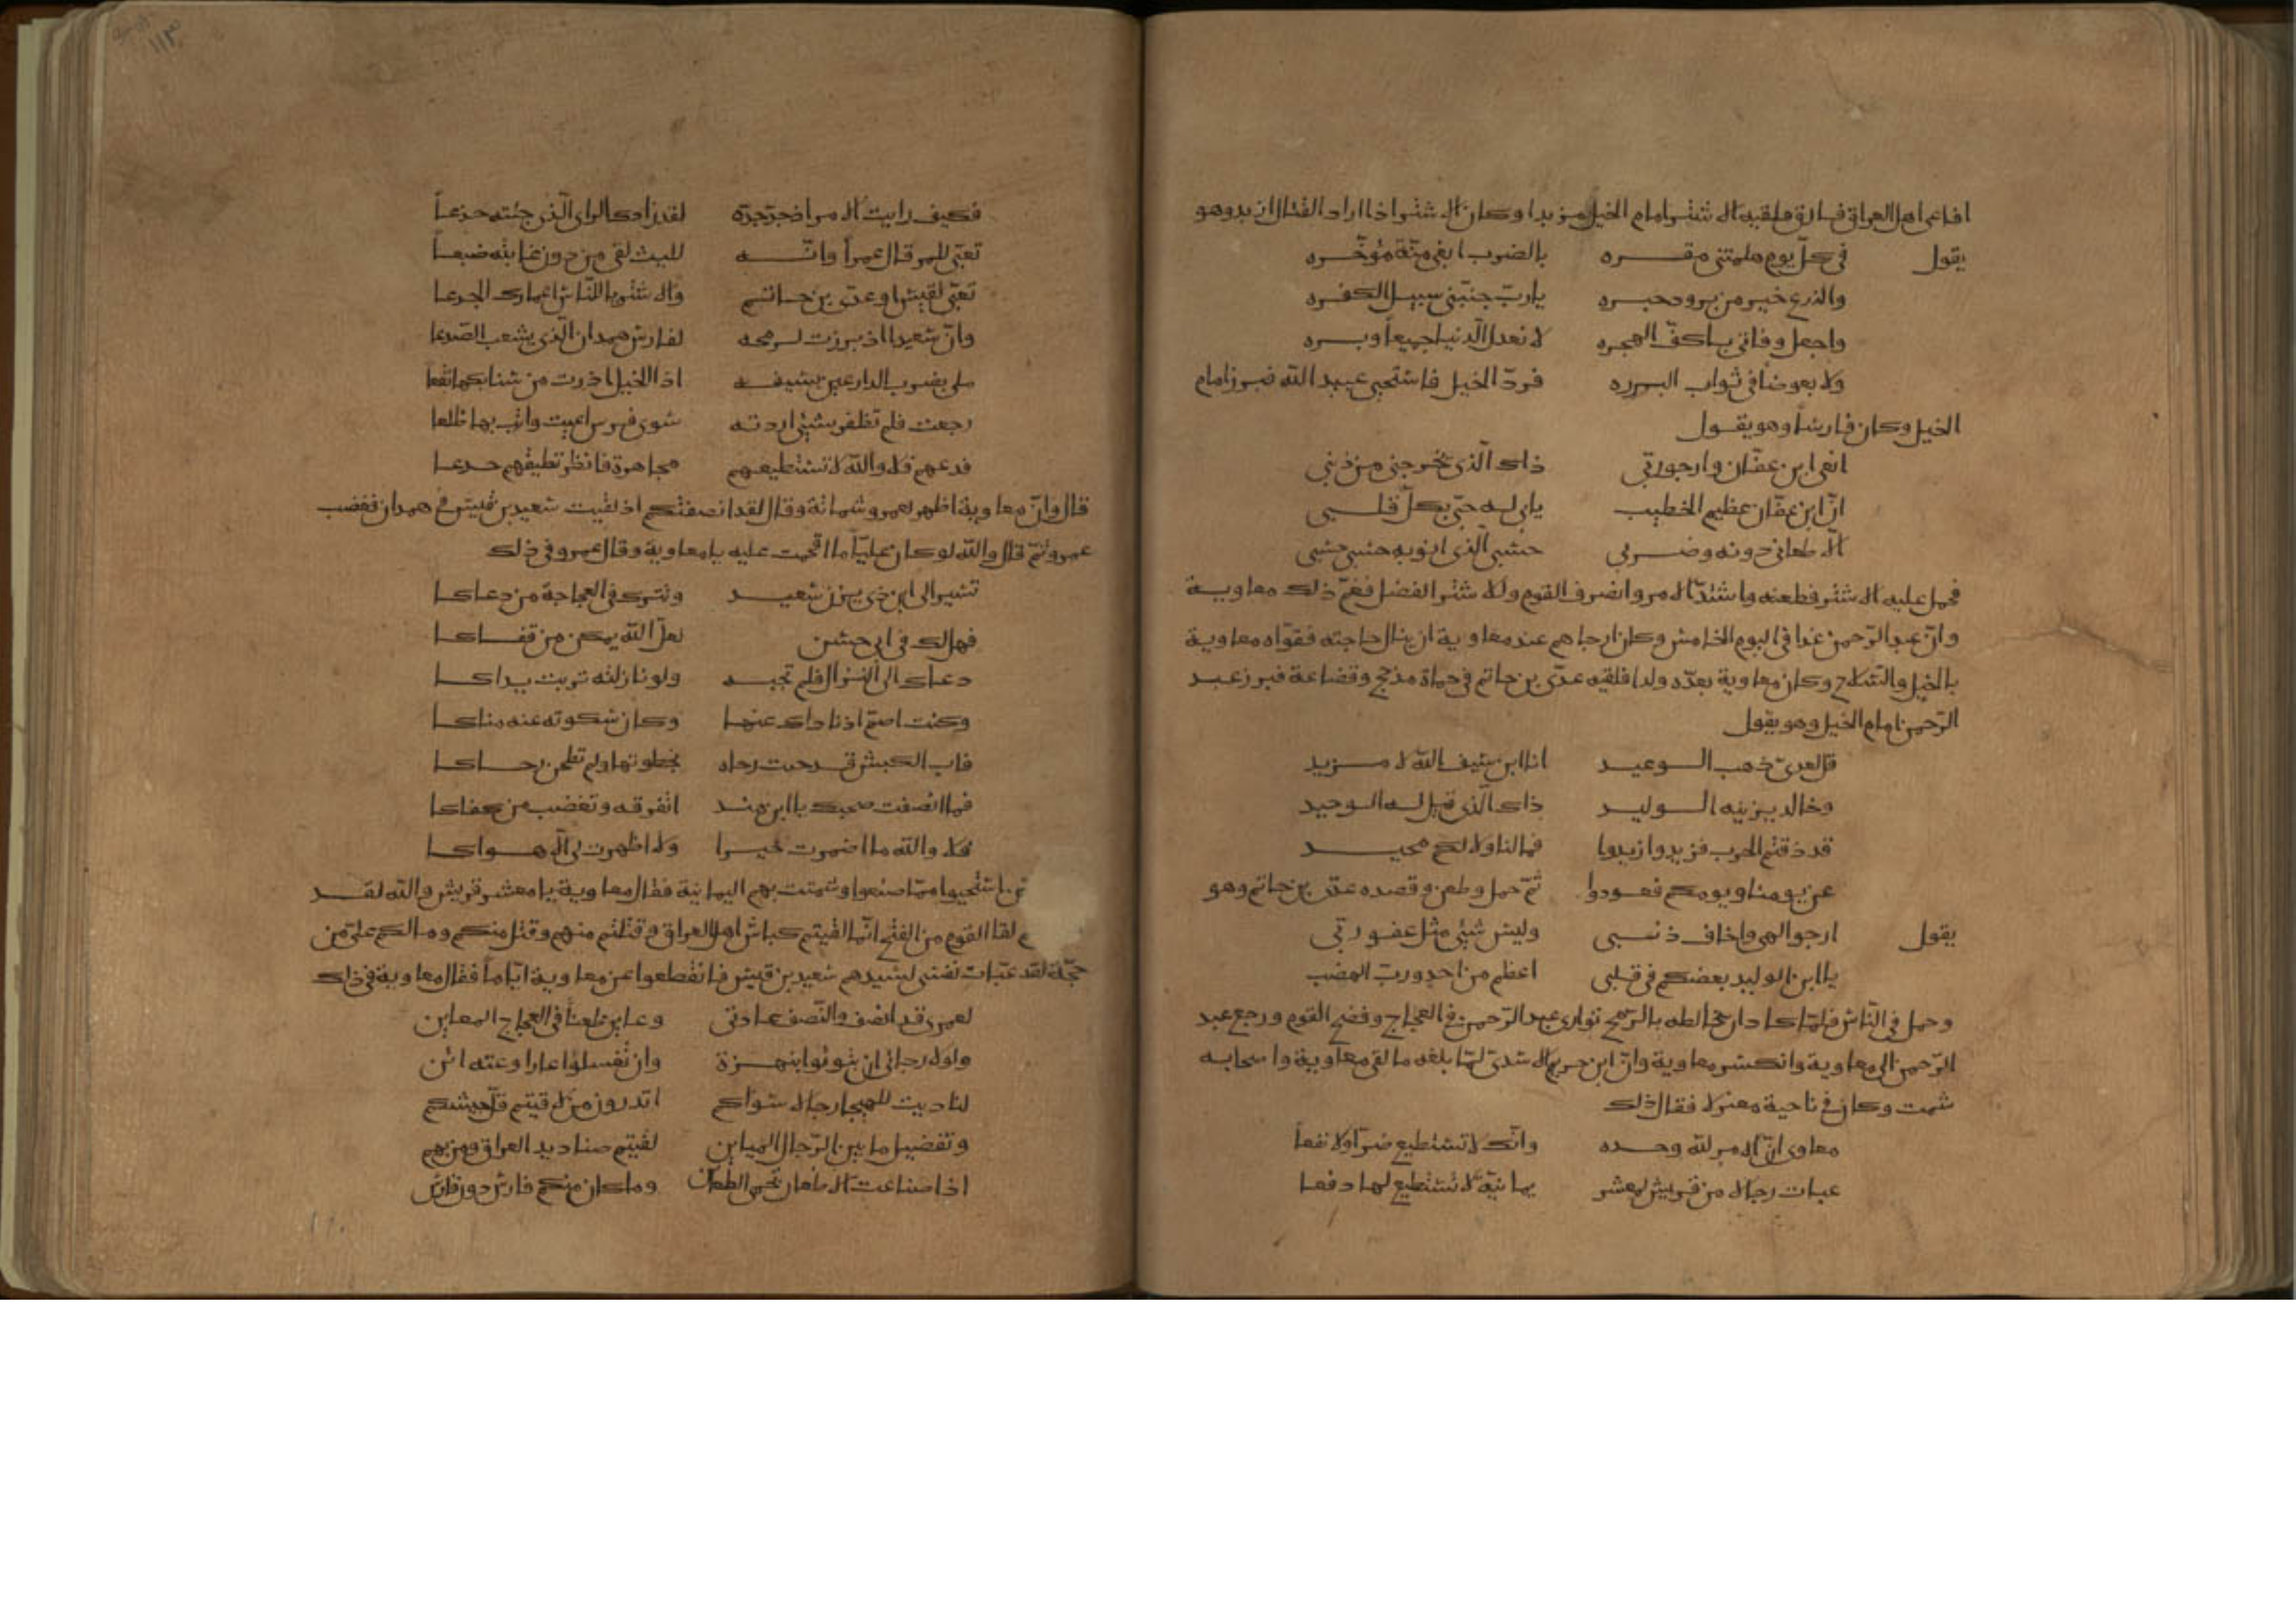 افاعى اهل العراق فارفق فلقيه الاشتر امام الخيل مزبدا وكان الاشتر اذا اراد القتال ازبد وهو
يقول في كل يوم هامتي مقره بالضرب ابغي منة مؤخره
والدرع خير من برود حبره يا رب جنبني سبيل الكفره
واجعل وفاتي باكف الفجره لا تعدل الدنيا جميعا وبره
ولا بعوضا في ثواب البرره فرد الخيل فاستحيى عبيد الله فبرز امام
الخيل وكان فارسا وهو يقول
انعى ابن عفان وارجو ربي ذاك الذي يخرجني من ذنبي
ان ابن عفان عظيم الخطب يابى له حبي بكل قلبي
الا طعاني دونه وضربي حسبي الذي انويه حسبي حسبي
فحمل عليه الاشتر فطعنه واشتد الامر وانصرف القوم وللاشتر الفضل فغم ذلك معاوية
وان عبد الرحمن غدا في اليوم الخامس وكان ارجاهم عند معاوية ان ينال حاجته فقواه معاوية
بالخيل والسلاح وكان معاوية يعده ولدا فلقيه عدي بن حاتم في حماة مذحج وقضاعة فبرز عبد
الرحمن امام الخيل وهو يقول
قل لعدي ذهب الوعيد انا ابن سيف الله لا مزيد
وخالد يزينه الوليد ذاك الذي قيل له الوحيد
قد ذقتم الحرب فزيدوا زيدوا فما لنا ولا لكم محيد
عن يومنا ويومكم فعودوا ثم حمل وطعن وقصده عدي بن حاتم وهو
يقول ارجو الهي واخاف ذنبي وليس شيئ مثل عفو ربي
يا ابن الوليد بغضكم في قلبي اعظم من احد ورب الهضب
وحمل في الناس فلما كاد ان يخالطه بالرمح توارى عبد الرحمن في العجاج وفضح القوم ورجع عبد
الرحمن الى معاوية وانكسر معاوية وان ابن خريم الاسدي لما بلغه ما لقي معاوية واصحابه
شمت وكان في ناحية معتزلا فقال ذلك
معاوى ان الامر لله وحده وانك لا تستطيع ضرا ولا نفعا
عبات رجالا من قريش لمعشر يمانية لا تستطيع لها دفعا
فكيف رايت الامر اذ جد جده لقد زادك الراى الذي جئته جدعا
تعبي للمرقال عمرا وانه لليث لقي من دون غابته ضبعا
تعبي لقيس او عدي بن حاتم والاشتر يا للناس اغمارك الجدعا
وان سعيدا اذ برزت لرمحه لفارس همدان الذي يشعب الصدعا
ملي بضرب الدارعين بسيفه اذا الخيل اذرت من سنابكها نقعا
رجعت فلم تظفر بشيئ اردته سوى فرس اعيت واتت بها ظلعا
فدعهم فلا والله لا تستطيعهم مجاهرة فانظر تطيقهم خدعا
قال وان معاوية اظهر لعمرو شماتة وقال لقد انصفتكم اذ لقيت سعيد بن قيس في همدان فغضب
عمرو ثم قال والله لو كان عليا ما اقحمت عليه يا معاوية وقال عمرو في ذلك
تسير الى ابن ذي يزن سعيد وتترك في العجاجة من دعاكا
فهل لك في ابي حسن لعل الله يمكن من قفاكا
دعاك الى النزال فلم تجبه ولو نازلته تربت يداكا
وكنت اصم اذ ناداك عنها وكان سكوته عنه مناكا
فاب الكبش قد طحنت رحاه بخطوتها ولم تطحن رحاكا
فما انصفت صحبك يا ابن هند اتفرقه وتغضب من كفاكا
فلا والله ما اضمرت خيرا ولا اظهرت لي الا هواكا
استحيوا مما صنعوا وشمتت بهم اليمانية فقال معاوية يا معشر قريش والله لقد
لقا القوم من الفتح انما لقيتم كباش اهل العراق وقتلتم منهم وقتل منكم وما لكم على من
حجة لقد عبات نفسي لسيدهم سعيد بن قيس فانقطعوا عن معاوية اياما فقال معاوية في ذلك
لعمرى قد انصفت والنصف عادتي وعاين طعنا في العجاج المعاين
ولولا رجائي ان تبوئوا بنهزة وان تغسلوا عارا وعته
لناديت للهيجا رجالا سواكم اتدرون من لاقيتم فل جيشكم
وتفضيل ما بين الرجال المباين لقيتم صناديد العراق ومن بهم
اذا ضاعت الاظعان تحمي الظعائن وما كان منكم فارس دون فارس